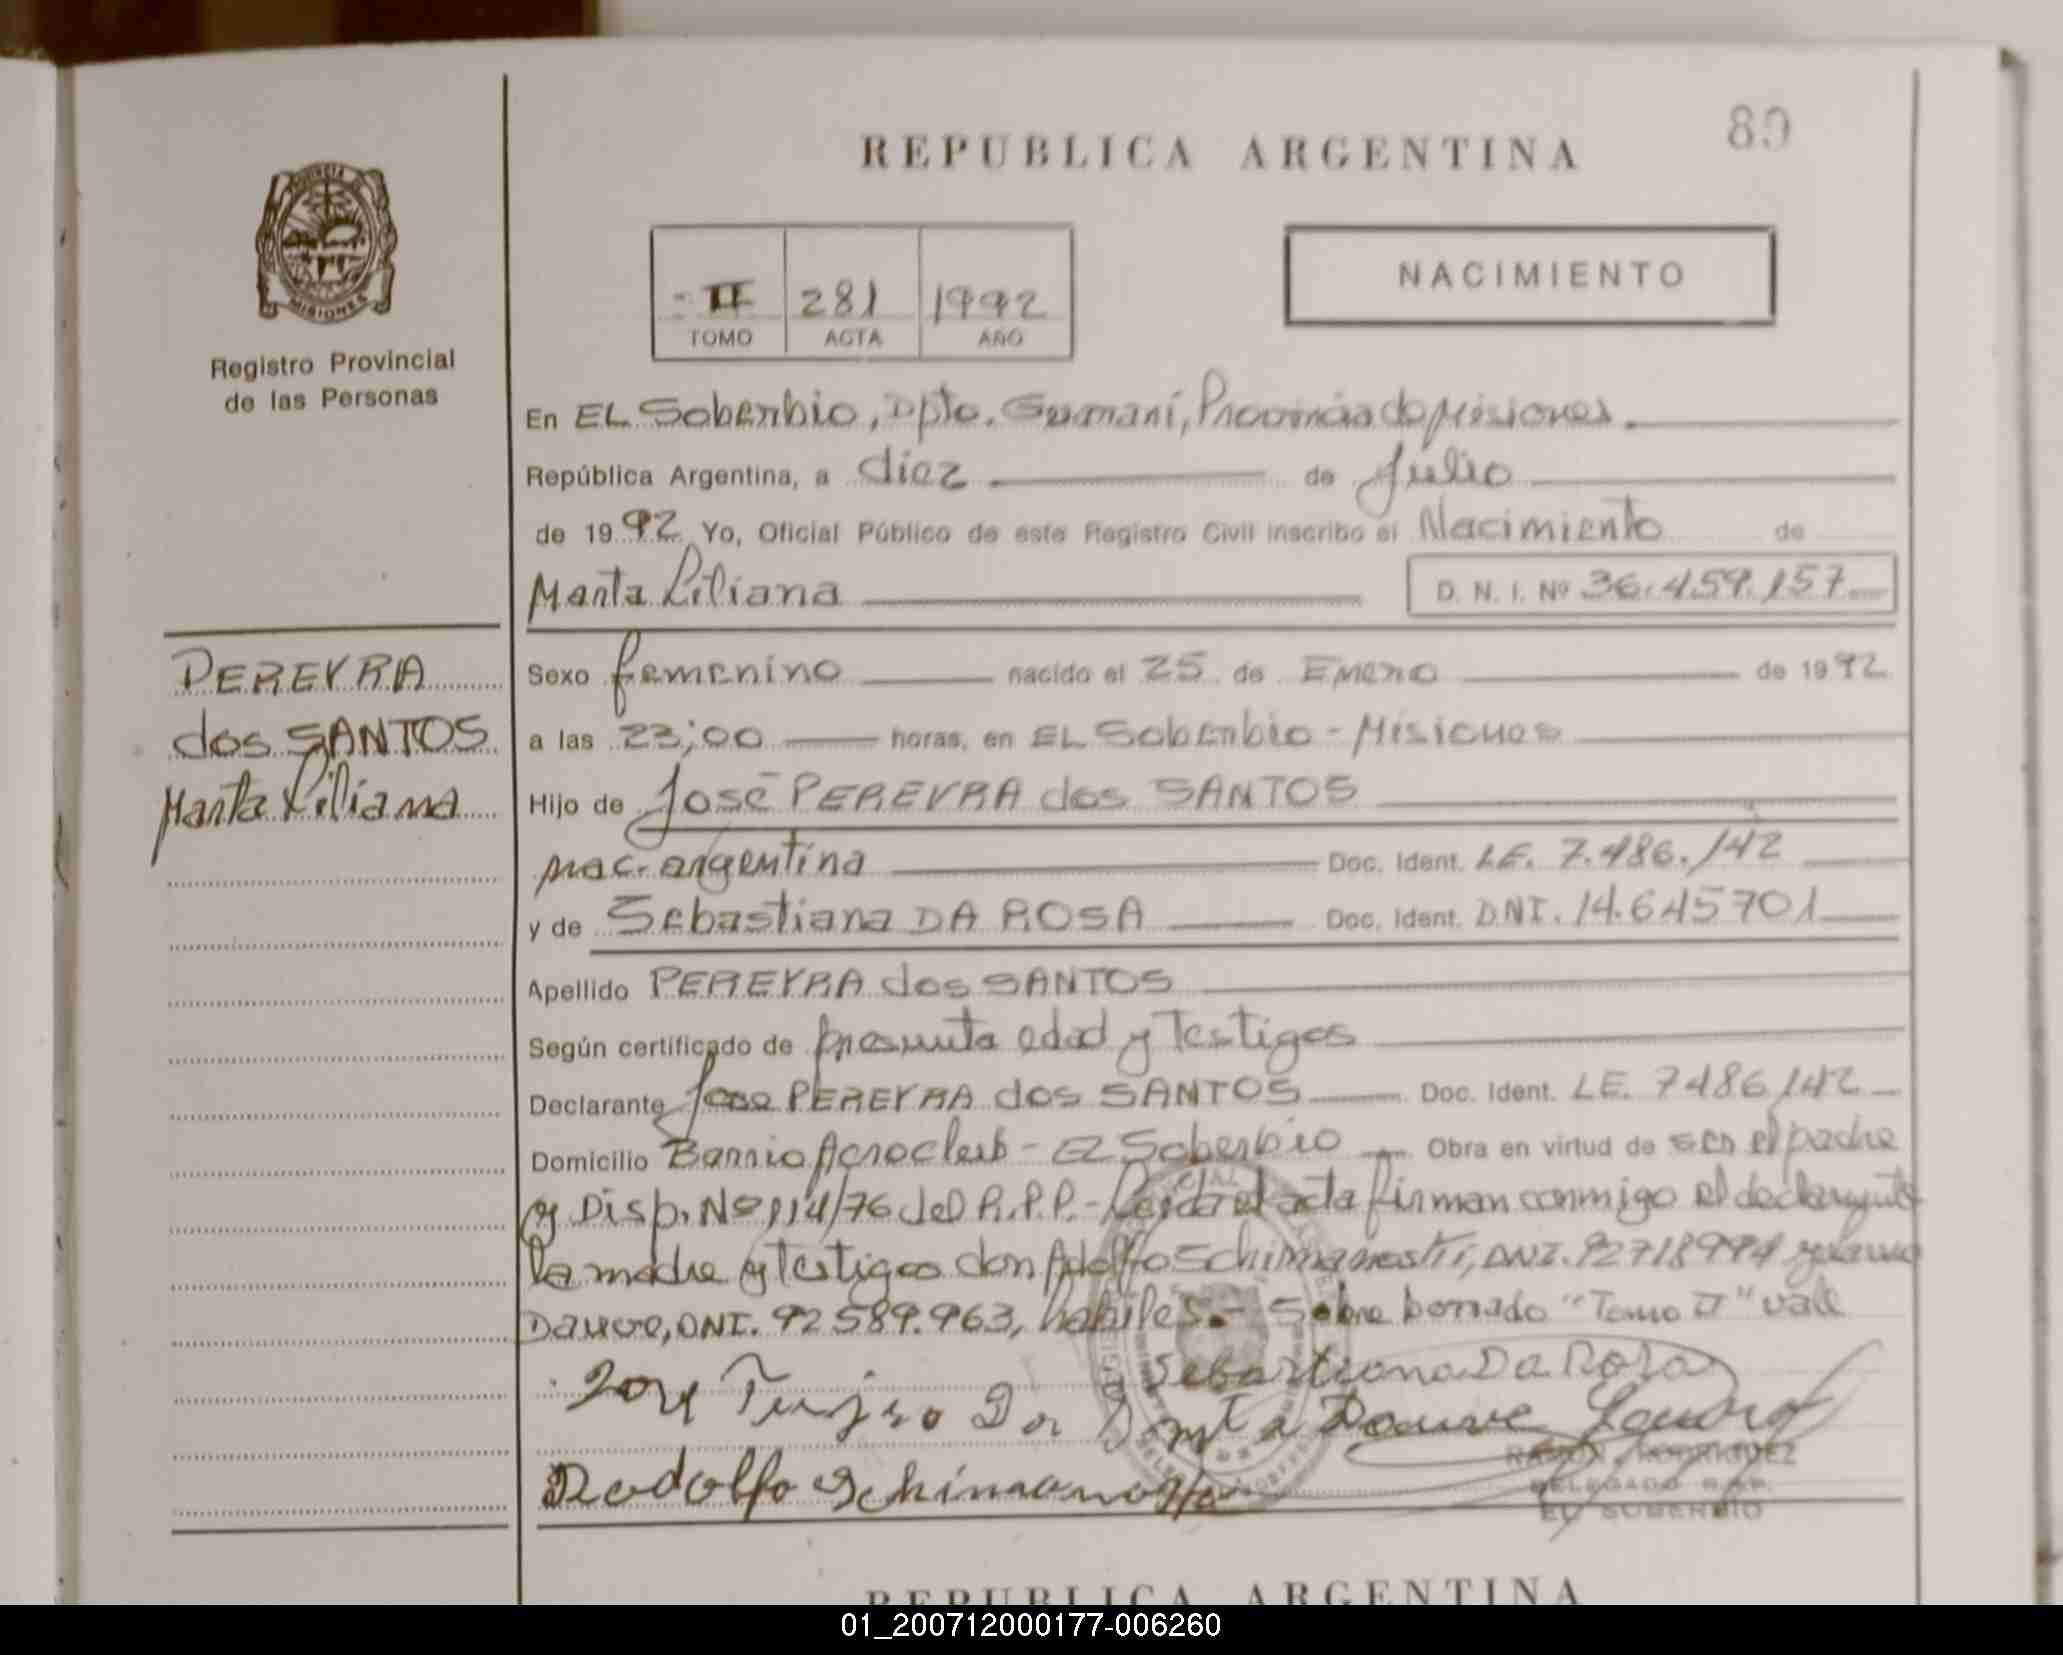 80
REPUBLICA ARGENTINA
PROVINCIA DE
MISIONES
Registro Provincial
de las Personas
II 281 1992
TOMO ACTA AÑO
NACIMIENTO
En EL Soberbio, Dpto. Guaraní, Provincia de Misiones.
República Argentina, a diez de Julio
de 1992 Yo, Oficial Público de este Registro Civil inscribo el Nacimiento de
Marta Liliana D. N. I. Nº 36.459.157
PEREYRA
dos SANTOS
Marta Liliana
Sexo femenino nacido el 25 de Enero de 1992
a las 23;00 horas, en EL Soberbio - Misiones
Hijo de José PEREYRA dos SANTOS
nac. argentina Doc. Ident. LE. 7.486.142
y de Sebastiana DA ROSA Doc. Ident. DNI. 14.645701
Apellido PEREYRA dos SANTOS
Según certificado de presunta edad y Testigos
Declarante Jose PEREYRA dos SANTOS Doc. Ident. LE. 7486142
Domicilio Barrio Aeroclub - EL Soberbio Obra en virtud de ser el padre
y Disp. Nº 114/76 del R.P.P. - Leida el acta firman conmigo el declarante
la madre y testigos don Adolfo DNI. 92718994
Dauve, DNI. 92 589.963, habiles. - Sobre borrado "Tomo II" vale
Sebastiana Da Rosa
Dauve
Rodolfo
RAMON RODRIGUEZ
DELEGADO R.P.P.
EL SOBERBIO
REPUBLICA ARGENTINA
01_200712000177-006260